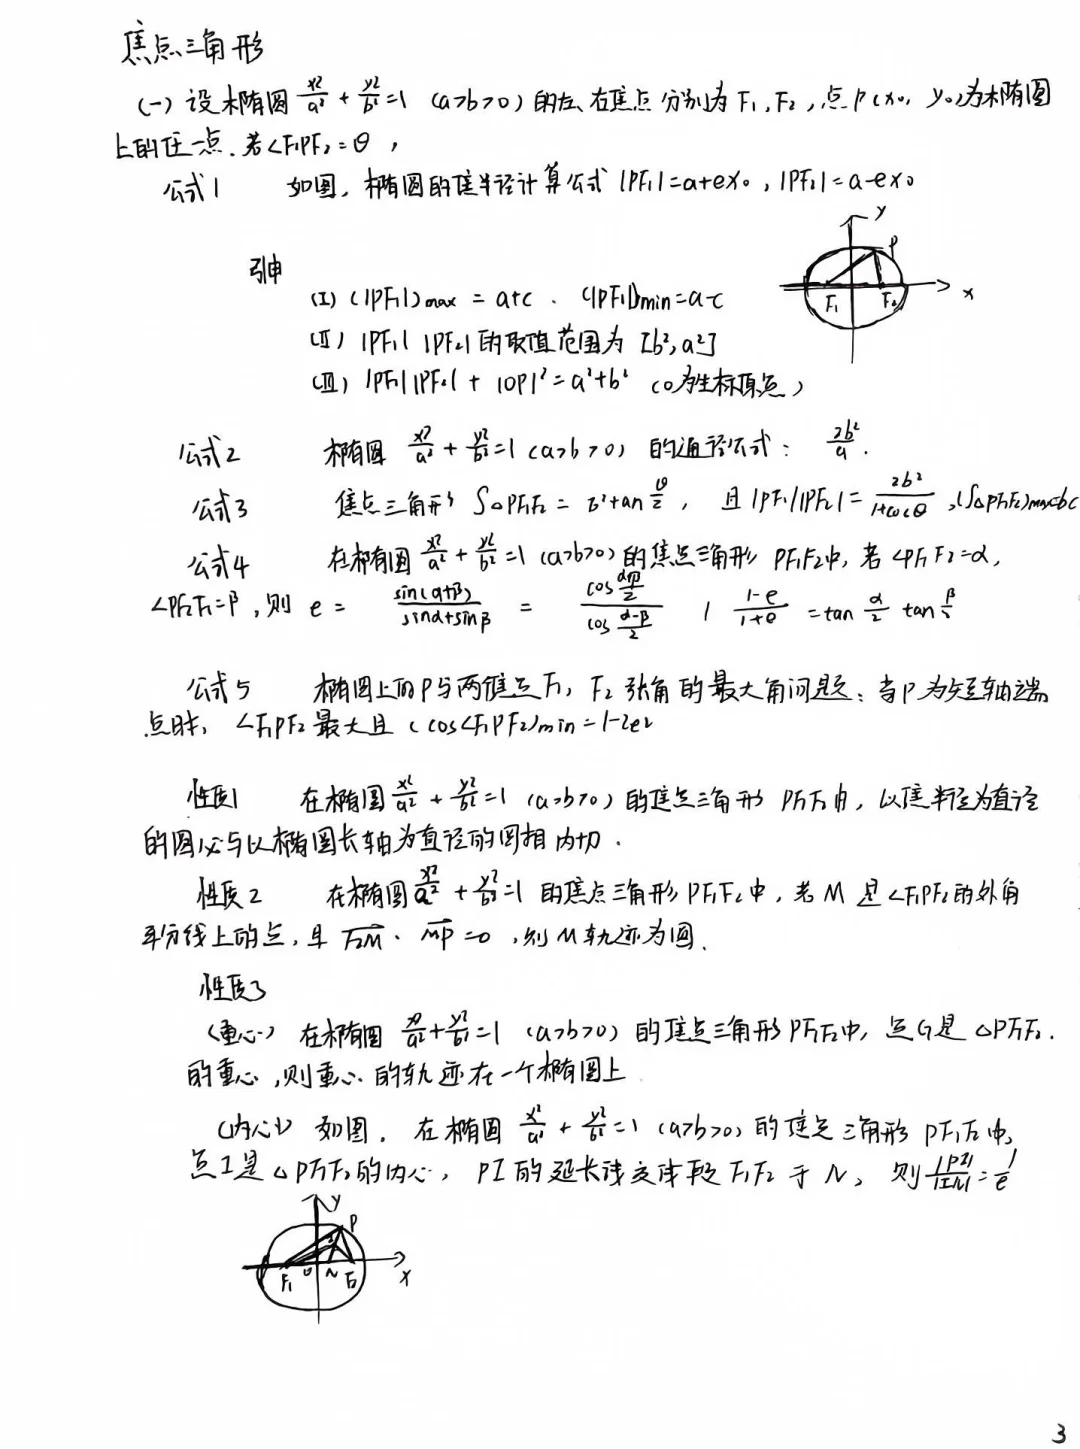 焦点三角形
(一) 设椭圆 x²/a² + y²/b² = 1 (a>b>0) 的左、右焦点分别为 F₁, F₂, 点 P(x₀, y₀) 为椭圆
上的任一点. 若∠F₁PF₂ = θ ,
公式1 如图, 椭圆的焦半径计算公式 |PF₁| = a+ex₀ , |PF₂| = a-ex₀
y
P
F₁ F₂ x
引申
(I) (|PF₁|)max = a+c . (|PF₁|)min = a-c
(II) |PF₁| |PF₂| 的取值范围为 [b², a²]
(III) |PF₁||PF₂| + |OP|² = a²+b² (O为坐标原点)
公式2 椭圆 x²/a² + y²/b² = 1 (a>b>0) 的通径公式: 2b²/a .
公式3 焦点三角形 S△PF₁F₂ = b² tan θ/2 , 且 |PF₁||PF₂| = 2b²/(1+cosθ) , (S△PF₁F₂)max=bc
公式4 在椭圆 x²/a² + y²/b² = 1 (a>b>0) 的焦点三角形 PF₁F₂中, 若∠PF₁F₂=α,
∠PF₂F₁=β , 则 e = sin(α+β)/(sinα+sinβ) = cos (α+β)/2 / cos (α-β)/2 , (1-e)/(1+e) = tan α/2 tan β/2
公式5 椭圆上的P与两焦点F₁, F₂ 张角的最大角问题: 当P为短轴端
点时, ∠F₁PF₂最大且 (cos∠F₁PF₂)min = 1-2e²
性质1 在椭圆 x²/a² + y²/b² = 1 (a>b>0) 的焦点三角形 PF₁F₂中, 以焦半径为直径
的圆必与以椭圆长轴为直径的圆相内切 .
性质2 在椭圆 x²/a² + y²/b² = 1 的焦点三角形 PF₁F₂中, 若 M 是∠F₁PF₂的外角
平分线上的点, 且 F₂M · MP = 0 , 则M轨迹为圆.
性质3
(重心) 在椭圆 x²/a² + y²/b² = 1 (a>b>0) 的焦点三角形 PF₁F₂中, 点G是△PF₁F₂.
的重心, 则重心的轨迹在一个椭圆上
(内心) 如图. 在椭圆 x²/a² + y²/b² = 1 (a>b>0) 的焦点三角形 PF₁F₂中,
点I是△PF₁F₂的内心, PI的延长线交线段 F₁F₂ 于 N, 则 |PI|/|IN| = 1/e
y
P
I
F₁ O N F₂ x
3